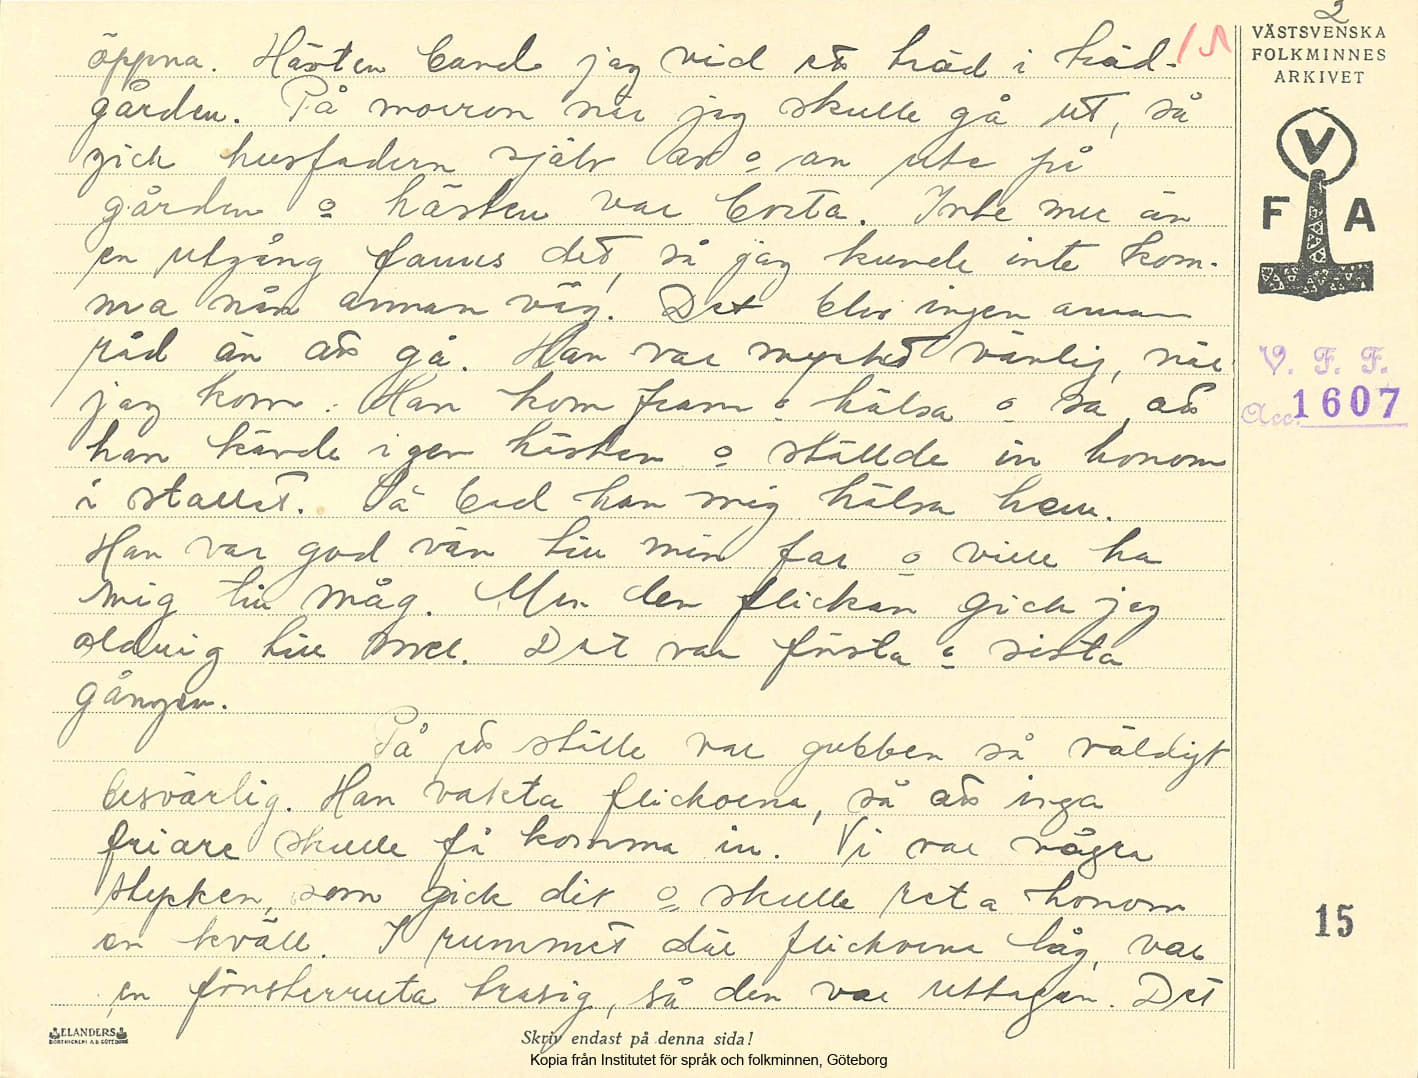 2
öppna. Hästen band jag vid ett träd i träd-
gården. På morron när jag skulle gå ut, så
gick husfadern själv av o an ute på
gården o hästen var borta. Inte mer än
en utgång fanns det, så jag kunde inte kom-
ma nån annan väg. Det blev ingen annan
råd än att gå. Han var mycket vänlig, när
jag kom. Han kom fram o hälsa o sa, att
han kände igen hästen o ställde in honom
i stallet. Så bad han mig hälsa hem.
Han var god vän till min far o ville ha
mig till måg. Men den flickan gick jag
aldrig till mer. Det var första o sista
gången.
På ett ställe var gubben så väldigt
besvärlig. Han vakta flickorna, så att inga
friare skulle få komma in. Vi var några
stycken, som gick dit o skulle reta honom
en kväll. I rummet där flickorna låg, var
en fönsterruta trasig, så den var uttagen. Det
VÄSTSVENSKA
FOLKMINNES
ARKIVET
V
F A
V. F. F.
Acc. 1607
15
ELANDERS
BOKTRYCKERI A.B. GÖTEBORG
Skriv endast på denna sida!
Kopia från Institutet för språk och folkminnen, Göteborg